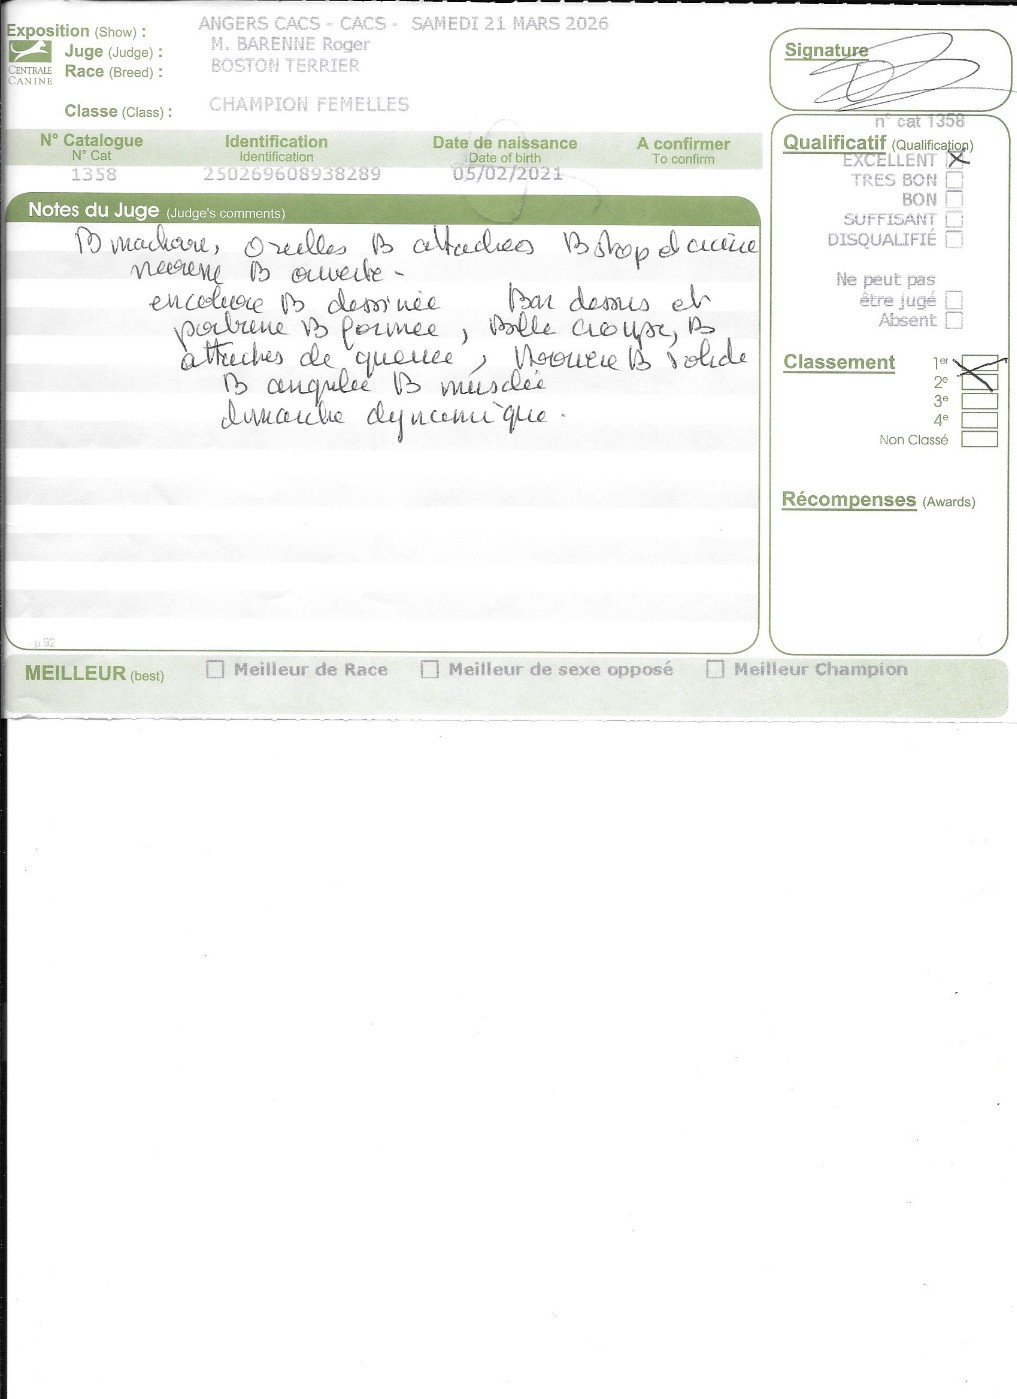 Exposition (Show) : ANGERS CACS - CACS - SAMEDI 21 MARS 2026
Juge (Judge) : M. BARENNE Roger
Race (Breed) : BOSTON TERRIER
CENTRALE CANINE
Classe (Class) : CHAMPION FEMELLES
N° Catalogue Identification Date de naissance A confirmer
N° Cat Identification Date of birth To confirm
1358 250269608938289 05/02/2021
Notes du Juge (Judge's comments)
B machoire, Oreilles B attachées B stop et
B ouverte -
encolure B dessinée Bon dessus et
poitrine B formée, Belle croupe, B
attaches de queue, B solide
B angulée B musclée
démarche dynamique.
p.92
MEILLEUR (best) Meilleur de Race Meilleur de sexe opposé Meilleur Champion
Signature
n° cat 1358
Qualificatif (Qualification)
EXCELLENT
TRES BON
BON
SUFFISANT
DISQUALIFIÉ
Ne peut pas
être jugé
Absent
Classement 1er
2e
3e
4e
Non Classé
Récompenses (Awards)